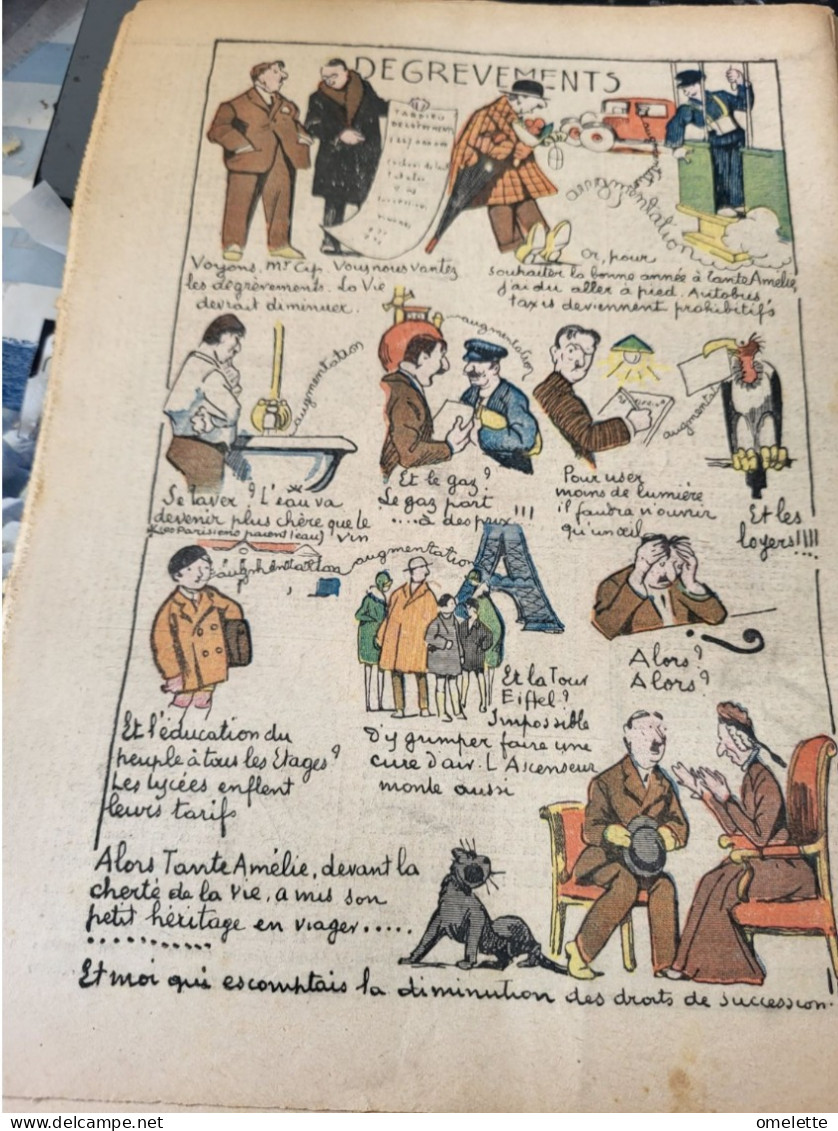 DEGREVEMENTS
TARDIEU
augmentation
augmentation
Voyons, Mr Cyp. Vous nous vantez
les dégrèvements. La Vie
devrait diminuer.
Or, pour
souhaiter la bonne année à tante Amélie,
j'ai du aller à pied. Autobus,
taxis deviennent prohibitifs
augmentation
augmentation
augmentation
Se laver? L'eau va
devenir plus chère que le
vin
(Les Parisiens paient l'eau)
Et le gaz?
Le gaz part
....à des prix !!!
Pour user
moins de lumière
il faudra n'ouvrir
qu'un œil
Et les
loyers!!!!
augmentation
augmentation
Et l'éducation du
peuple à tous les Etages?
Les lycées enflent
leurs tarifs
Et la Tour
Eiffel?
Impossible
d'y grimper faire une
cure d'air. L'Ascenseur
monte aussi
Alors?
Alors?
Alors Tante Amélie, devant la
cherté de la vie, a mis son
petit héritage en viager.....
...........
Et moi qui escomptais la diminution des droits de succession.
omelette